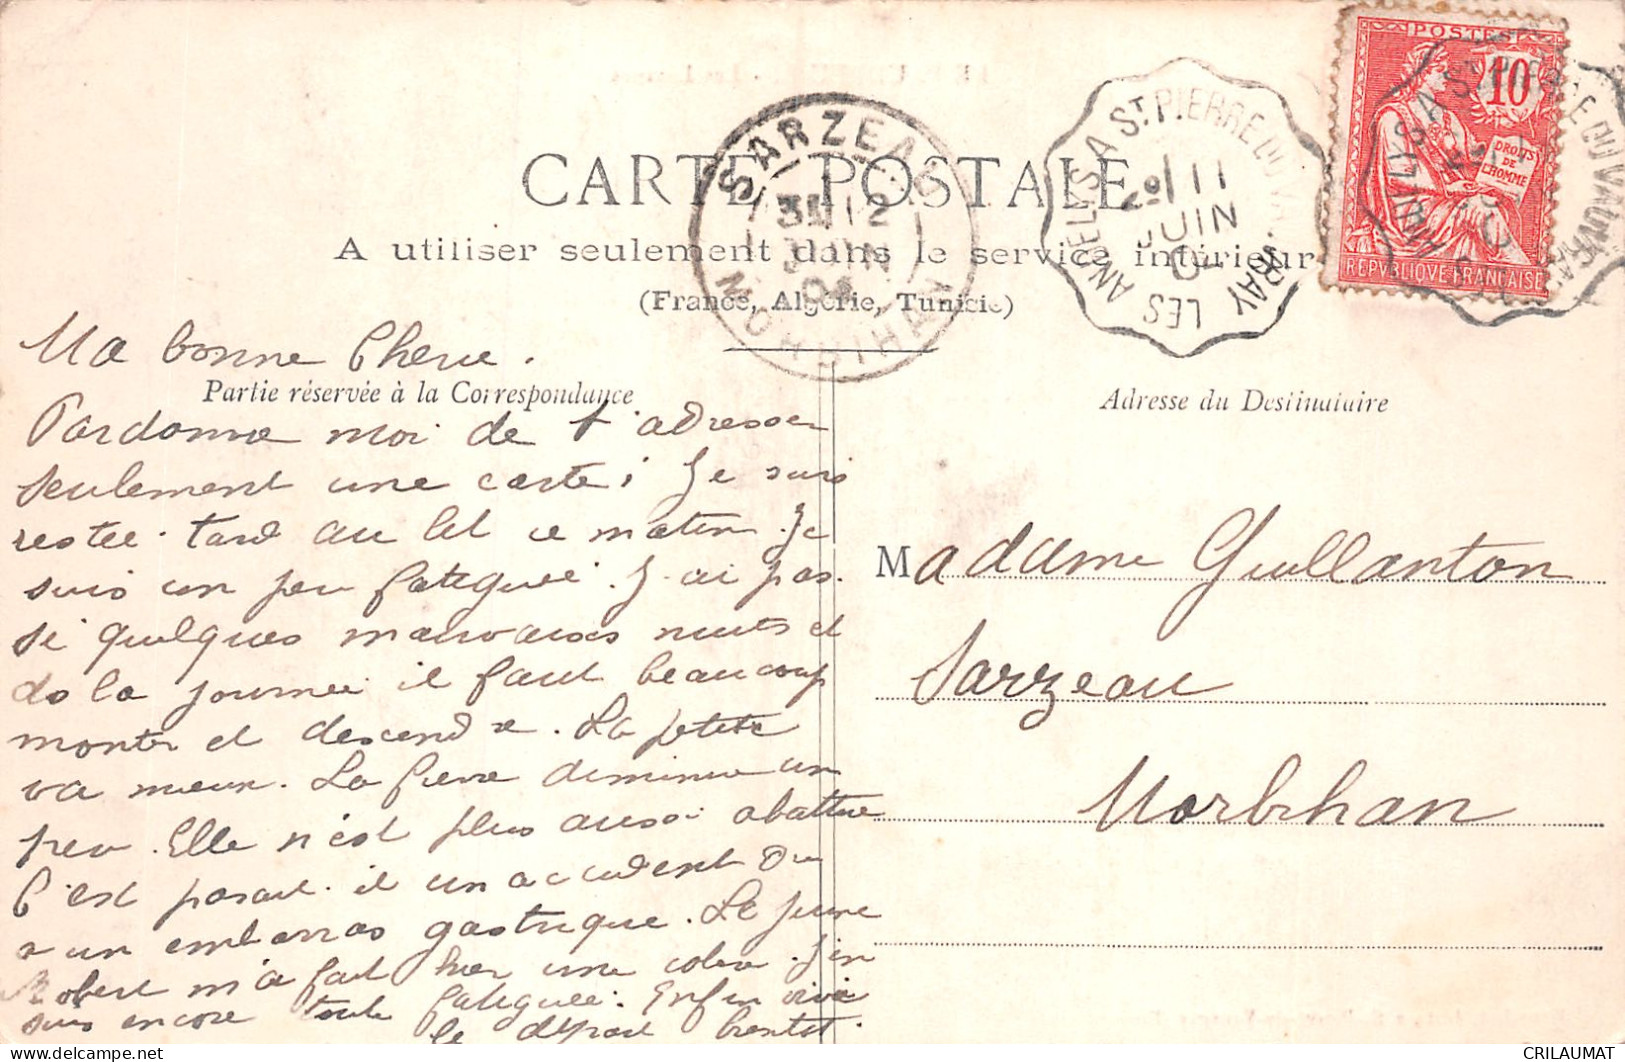 CARTE POSTALE
A utiliser seulement dans le service intérieur
(France, Algérie, Tunisie)
Partie réservée à la Correspondance
Adresse du Destinataire
SARZEAU
3E 12
JUIN
04
MORBIHAN
LES ANDELYS A ST PIERRE DU VAUVRAY
2° 11
JUIN
04
POSTES
10
DROITS
DE
L'HOMME
REPVBLIQVE FRANÇAISE
Ma bonne Cherie.
Pardonne moi de t'adresser
seulement une carte; Je suis
restée tard au lit ce matin. Je
suis un peu fatiguée. J'ai pas
si quelques mauvaises nuits et
do la journée il faut beaucoup
monter et descendre. La petite
va mieux. La fievre diminue un
peu. Elle n'est plus aussi abattue
C'est parait il un accident du
a un embarras gastrique. Le jeune
Robert m'a fait hier une colere. J'en
suis encore toute fatiguée. Enfin vive
le départ bientot.
Madame Guillanton
Sarzeau
Morbihan
CRILAUMAT